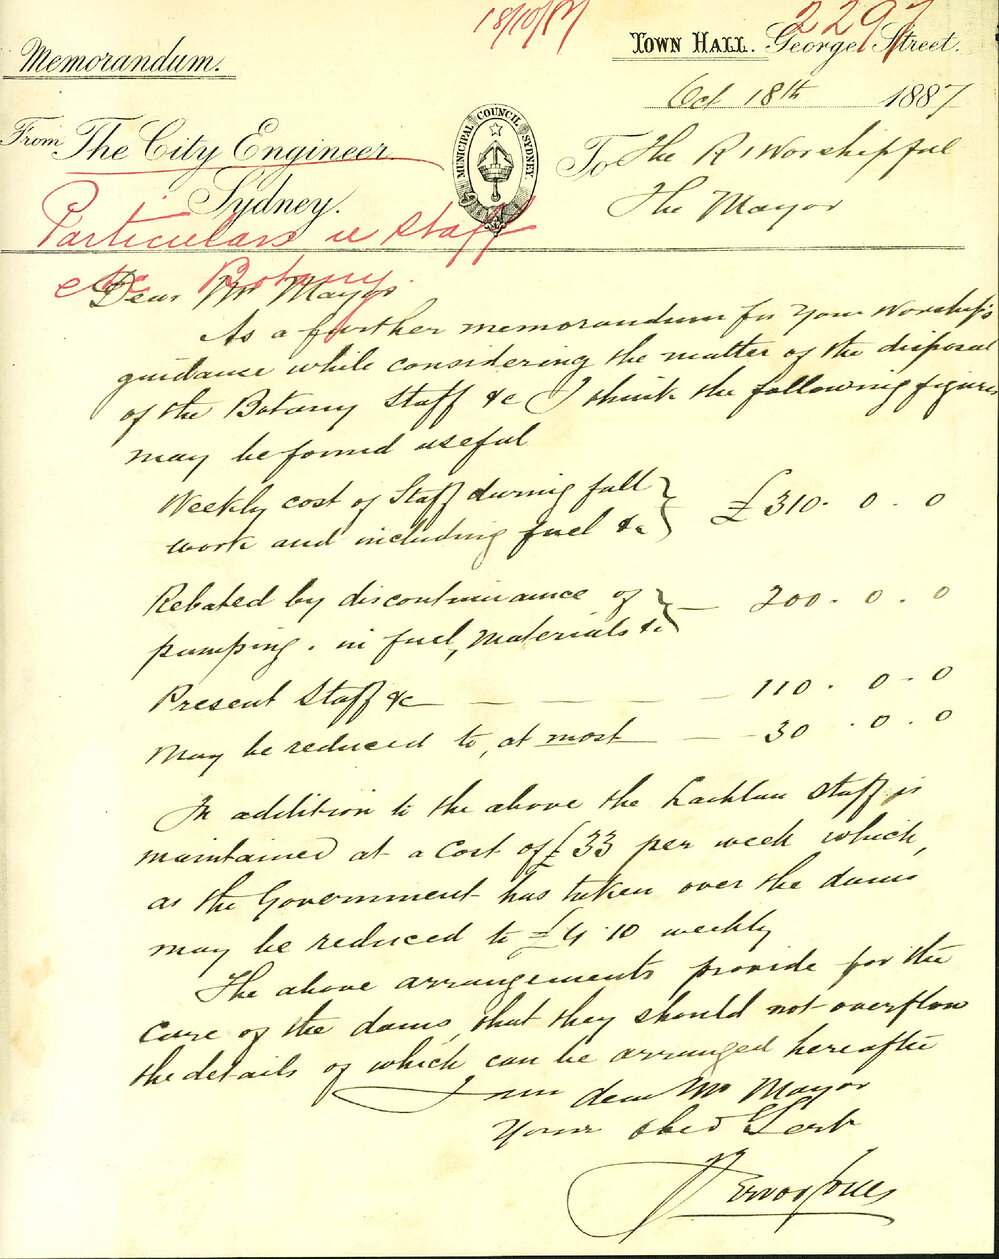 18/10/87
2297
Memorandum.
TOWN HALL. George Street.
Oct 18th 1887
From The City Engineer
Sydney.
MUNICIPAL COUNCIL SYDNEY
To The Rt Worshipful
The Mayor
Particulars re Staff
etc Botany.
Dear Mr Mayor
As a further memorandum for Your Worship's
guidance while considering the matter of the disposal
of the Botany Staff &c I think the following figures
may be found useful
Weekly cost of Staff during full
work and including fuel &c } £310. 0. 0
Rebated by discontinuance of
pumping. in fuel, materials &c } — 200. 0. 0
Present Staff &c — — — — 110. 0. 0
May be reduced to, at most — — 30. 0. 0
In addition to the above the Lachlan Staff is
maintained at a cost of £33 per week which,
as the Government has taken over the dams
may be reduced to £4.10 weekly
The above arrangements provide for the
care of the dams, that they should not overflow
the details of which can be arranged hereafter
I am dear Mr Mayor
Your obed Servt